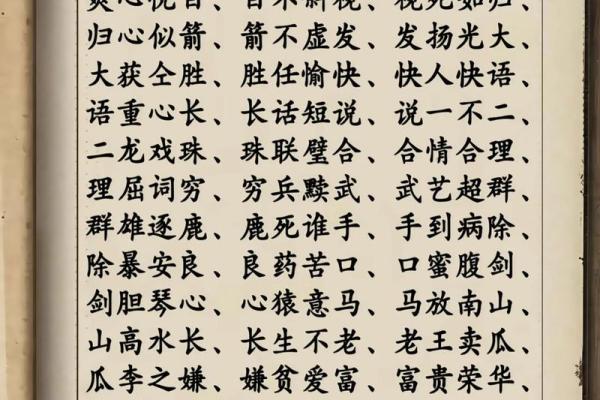 心悦目、目不斜视、视死如归、
归心似箭、箭不虚发、发扬光大、
大获仝胜、胜任愉快、快人快语、
语重心长、长话短说、说一不二、
二龙戏珠、珠联璧合、合情合理、
理屈词穷、穷兵黩武、武艺超群、
群雄逐鹿、鹿死谁手、手到病除、
除暴安良、良药苦口、口蜜腹剑、
剑胆琴心、心猿意马、马放南山、
山高水长、长生不老、老王卖瓜、
瓜李之嫌、嫌贫爱富、富贵荣华、